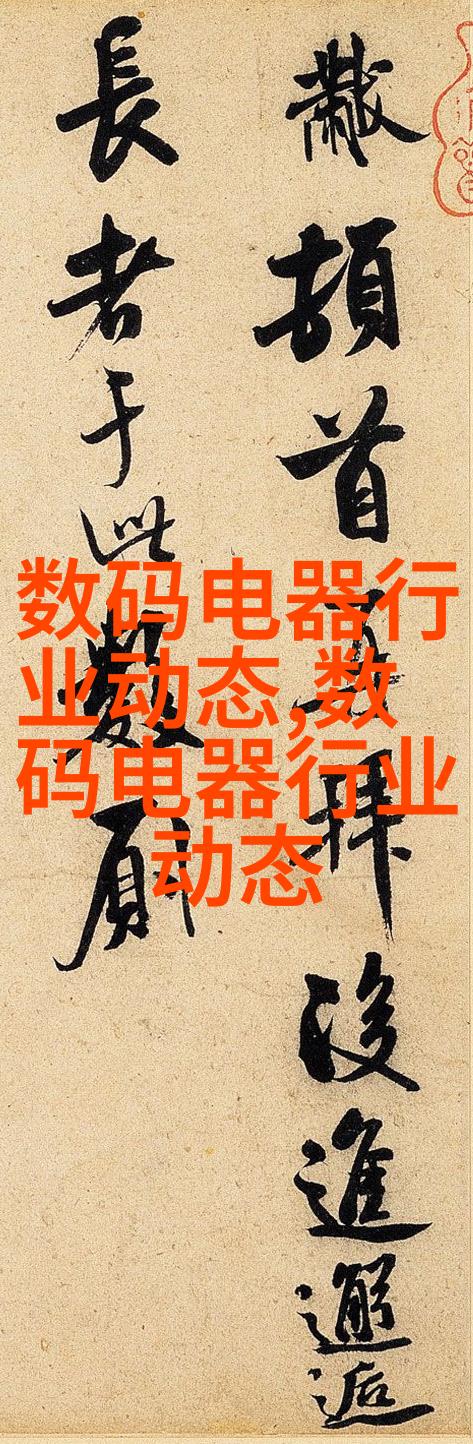 黻頓首再拜後進邂逅
長者于此數厠
数码电器行
业动态,数
码电器行业
动态